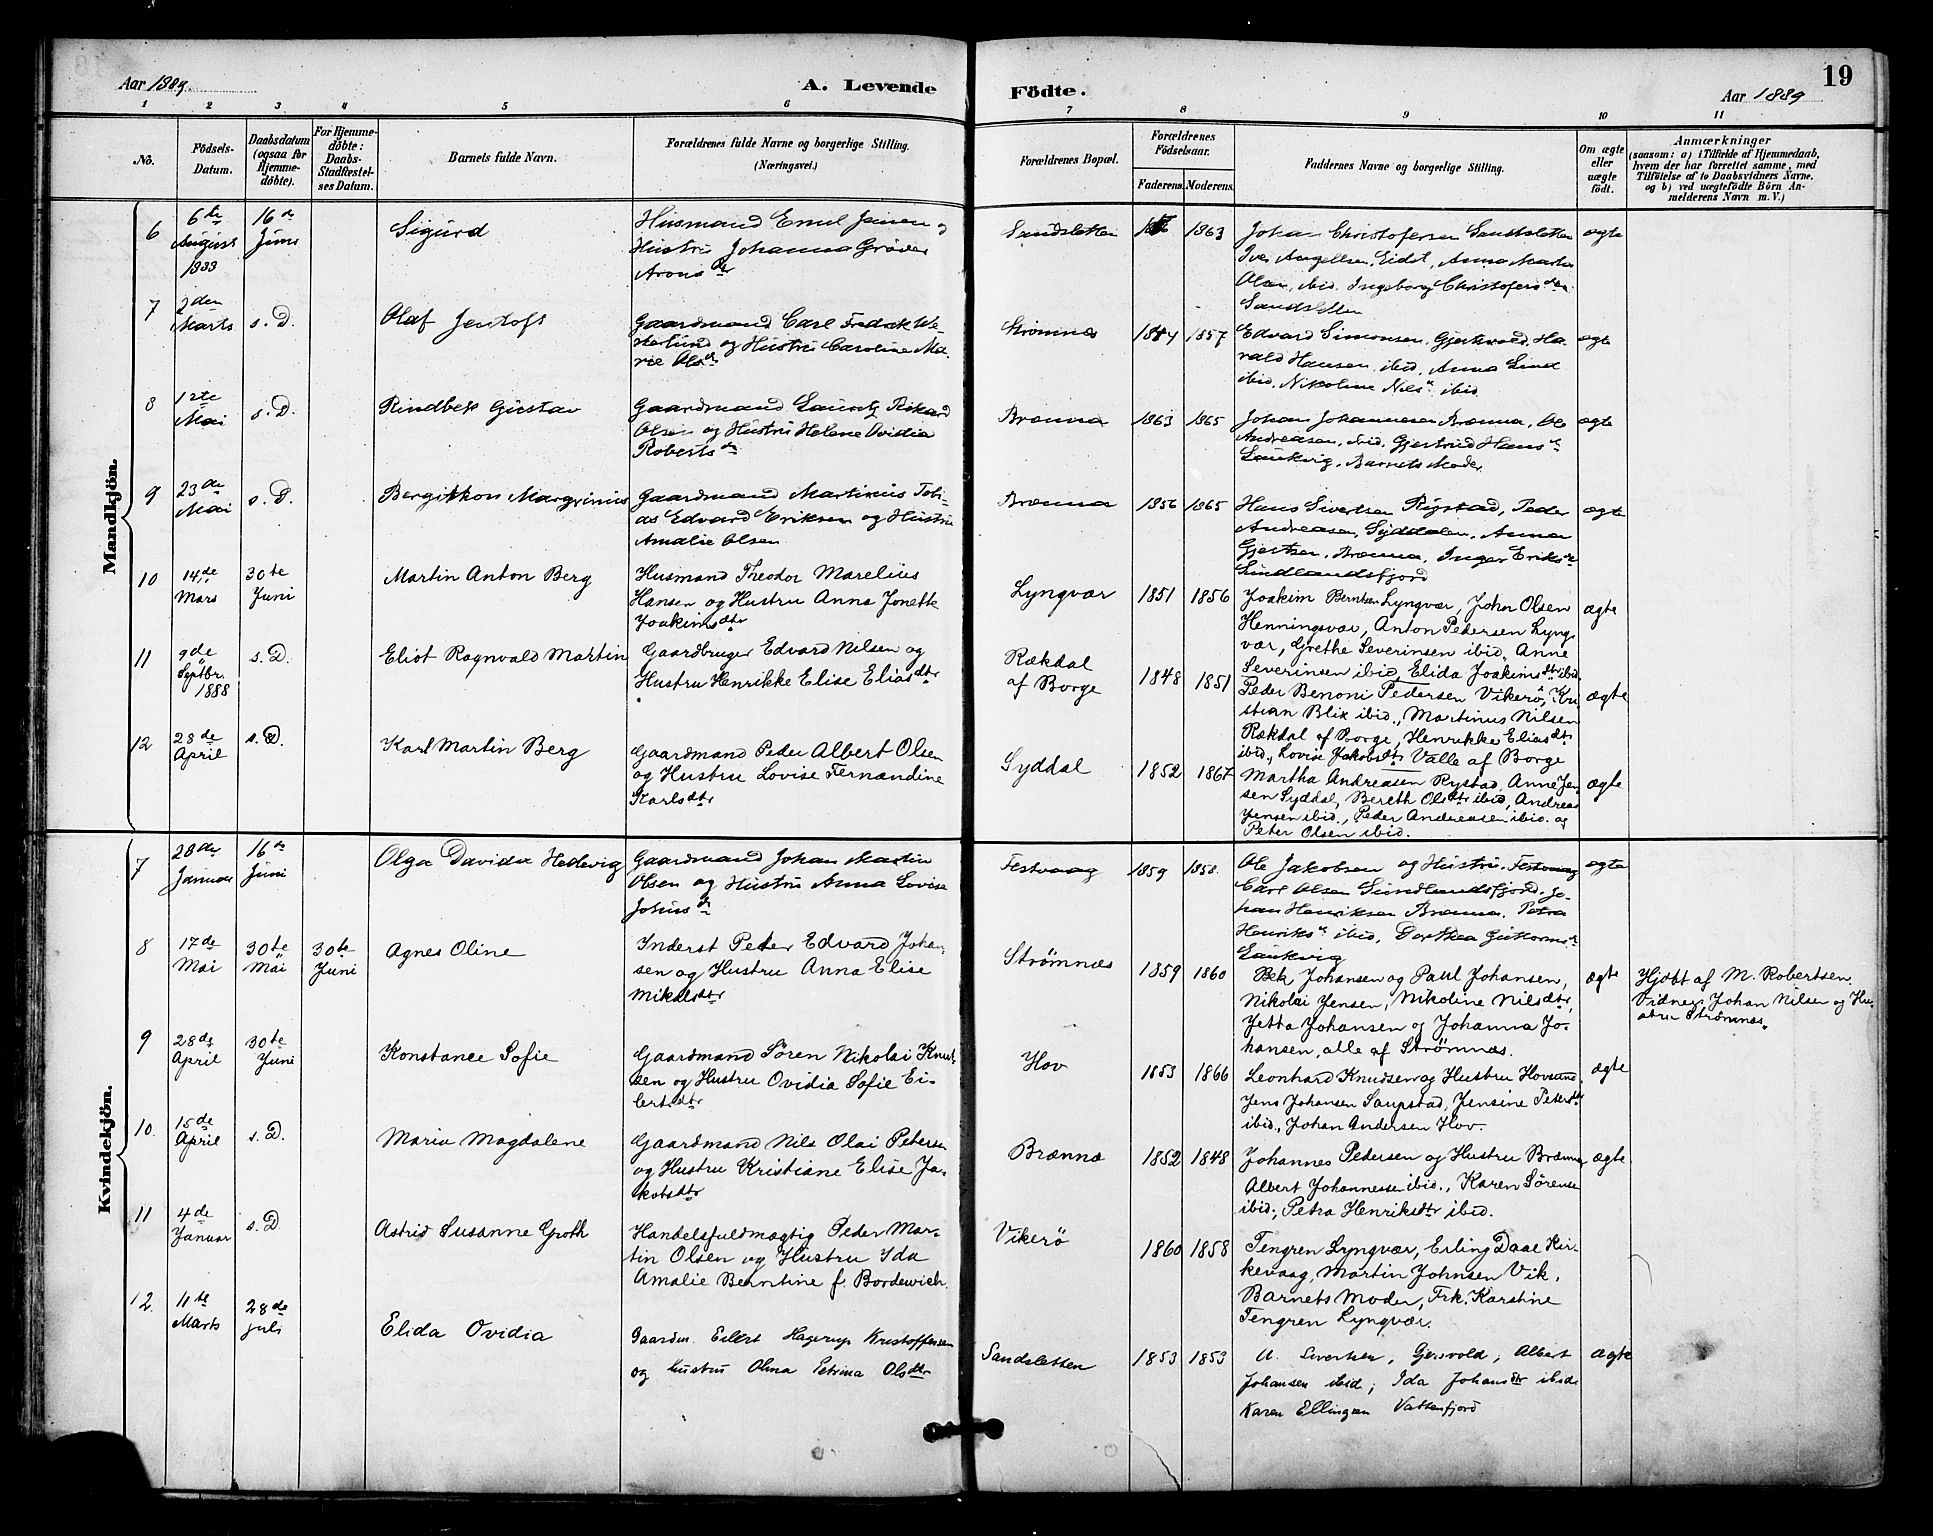 19
Aar 1889.
A. Levende
Födte.
Aar 1889
1 2 3 4 5 6 7 8 9 10 11
No.
Födsels-
Datum.
Daabsdatum
(ogsaa for
Hjemme-
döbte).
For Hjemme-
döbte:
Daabs-
Stadfæstel-
ses Datum.
Barnets fulde Navn.
Forældrenes fulde Navne og borgerlige Stilling.
(Næringsvei.)
Forældrenes Bopæl.
Forældrenes
Födselsaar.
Faderens. Moderens.
Faddernes Navne og borgerlige Stilling.
Om ægte
eller
uægte
födt.
Anmærkninger
(saasom: a) i Tilfælde af Hjemmedaab,
hvem der har forrettet samme, med
Tilföielse af to Daabsvidners Navne,
og b) ved uægtefödte Börn An-
melderens Navn m. V.)
Mandkjön.
6
6te
August
16de
Juni
Sigurd
Husmand Emil Jensen og
Hustru Johanna
Arons dtr
Sandsletten
1863
Johan Christofersen Sandsletten
Eidet, Anna Marta
Olsen, ibid. Ingeborg Christofers dtr
Sandsletten
ægte
7
2den
Marts
s. D.
Olaf Jentoft
Gaardmand Carl Fredrik We-
sterlund og Hustru Caroline Ma-
rie Ols dtr
Strømnes
1857
Edvard Simonsen, Ha-
rald Hansen ibid, Anna Lind
ibid, Nikoline Nils dtr ibid
ægte
8
12te
Mai
s. D.
Rindbek Gustav
Gaardmand Lauritz Rikard
Olsen og Hustru Helene Ovidia
Roberts dtr
Brænna
1863 1865
Johan Johannesen Brænna, Ole
Andreasen, ibid, Gjertrud Hans dtr
Laukvig, Barnets Moder
ægte
9
23de
Mai
s. D.
Bergitkon Margrinius
Gaardmand Martinus Tobi-
as Edvard Eriksen og Hustru
Amalie Olsen
Brænna
1856 1865
Hans Sivertsen Rystad, Peder
Andreasen, Syddalen, Anna
Gjertsen, Brænna, Inger Eriks dtr
Sundlandsfjord
ægte
10
14de
Mars
30te
Juni
Martin Anton Berg
Husmand Theodor Marelius
Hansen og Hustru Anna Jonette
Joakimsdtr
Lyngvær
1851 1856
Joakim Berntsen Lyngvær, John Olsen
Henningsvær, Anton Pedersen Lyng-
vær, Grethe Severinsen ibid, Anne
Severinsen ibid, Elida Joakimsdtr ibid.
ægte
11
9de
Septbr.
1888
s. D.
Eliot Ragnvald Martin
Gaardbruger Edvard Nilsen og
Hustru Henrikke Elise Eliasdtr
Rækdal
af Borge
1848 1851
Peder Benoni Pedersen Vikerö, Kri-
stian Blix ibid., Martinus Nilsen
Rækdal af Borge, Henrikke Eliasdtr
ibid., Lovise Jakobsdtr Valle af Borge
ægte
12
28de
April
s. D.
Karl Martin Berg
Gaardmand Peder Albert Olsen
og Hustru Lovise Fernandine
Karlsdtr
Syddal
1852 1867
Martha Andreasen Rystad, Anne Jen-
sen Syddal, Bereth Olsdtr ibid, Andreas
Jensen ibid., Peder Andreasen ibid. og
Peter Olsen ibid.
ægte
Kvindekjön.
7
28de
Januar
16de
Juni
Olga Davida Hedevig
Gaardmand Johan Martin
Olsen og Hustru Anna Lovise
Johns dtr
Festvaag
1859 1858.
Ole Jakobsen og Hustru, Festvaag
Carl Olsen Sundlandsfjord, Jo-
han Henriksen Brænna, Petra
Henriks dtr ibid, Dorthea
Laukvig
ægte
8
17de
Mai
30te
Mai
30te
Juni
Agnes Oline
Inderst Peter Edvard Johan-
sen og Hustru Anna Elise
Mikalsdtr
Strømnæs
1859 1860
Bek Johansen og Paul Johansen,
Nikolai Jensen, Nikoline Nilsdtr,
Jetta Johansen og Johanna Jo-
hansen, alle af Strømnæs.
ægte
Hjdöbt af M. Robertsen.
Vidner Johan Nilsen og Hu-
stru Strømnæs.
9
28de
April
30te
Juni
Konstance Sofie
Gaardmand Sören Nikolai Knut-
sen og Hustru Ovidia Sofie Ei-
lertsdtr
Hov
1853 1866
Leonhard Knudsen og Hustru Hovsund,
Jens Johansen Saupstad, Jensine Petersdtr
ibid., Johan Andersen Hov.
ægte
10.
15de
April
s. D.
Maria Magdalene
Gaardmand Nils Olai Petersen
og Hustru Kristiane Elise Ja-
kobsdtr
Brænnæ
1852 1848
Johannes Pedersen og Hustru Brænna,
Albert Johannessen ibid., Karen Sörensen
ibid., Petra Henriksdtr ibid.
ægte
11
4de
Januar
s. D
Astrid Susanne Groth
Handelsfuldmægtig Peder Mar-
tin Olsen og Hustru Ida
Amalie Berntine f. Bordewich.
Vikerö
1860 1858
Tengren Lyngvær, Erling Daae Kir-
kevaag, Martin Johnsen Vik,
Barnets Moder, Frk. Karstine
Tengren Lyngvær.
12.
11te
Marts
28de
juli
Elida Ovidia
Gaardm. Eilert Hagerup Kristoffersen
og hustru Olma Petrina Olsdtr
Sandsletten
1853 1853
Albert
Johansen ibid; Ida Johansdtr ibid
Karen Ellingsen Vattenfjord
ægte